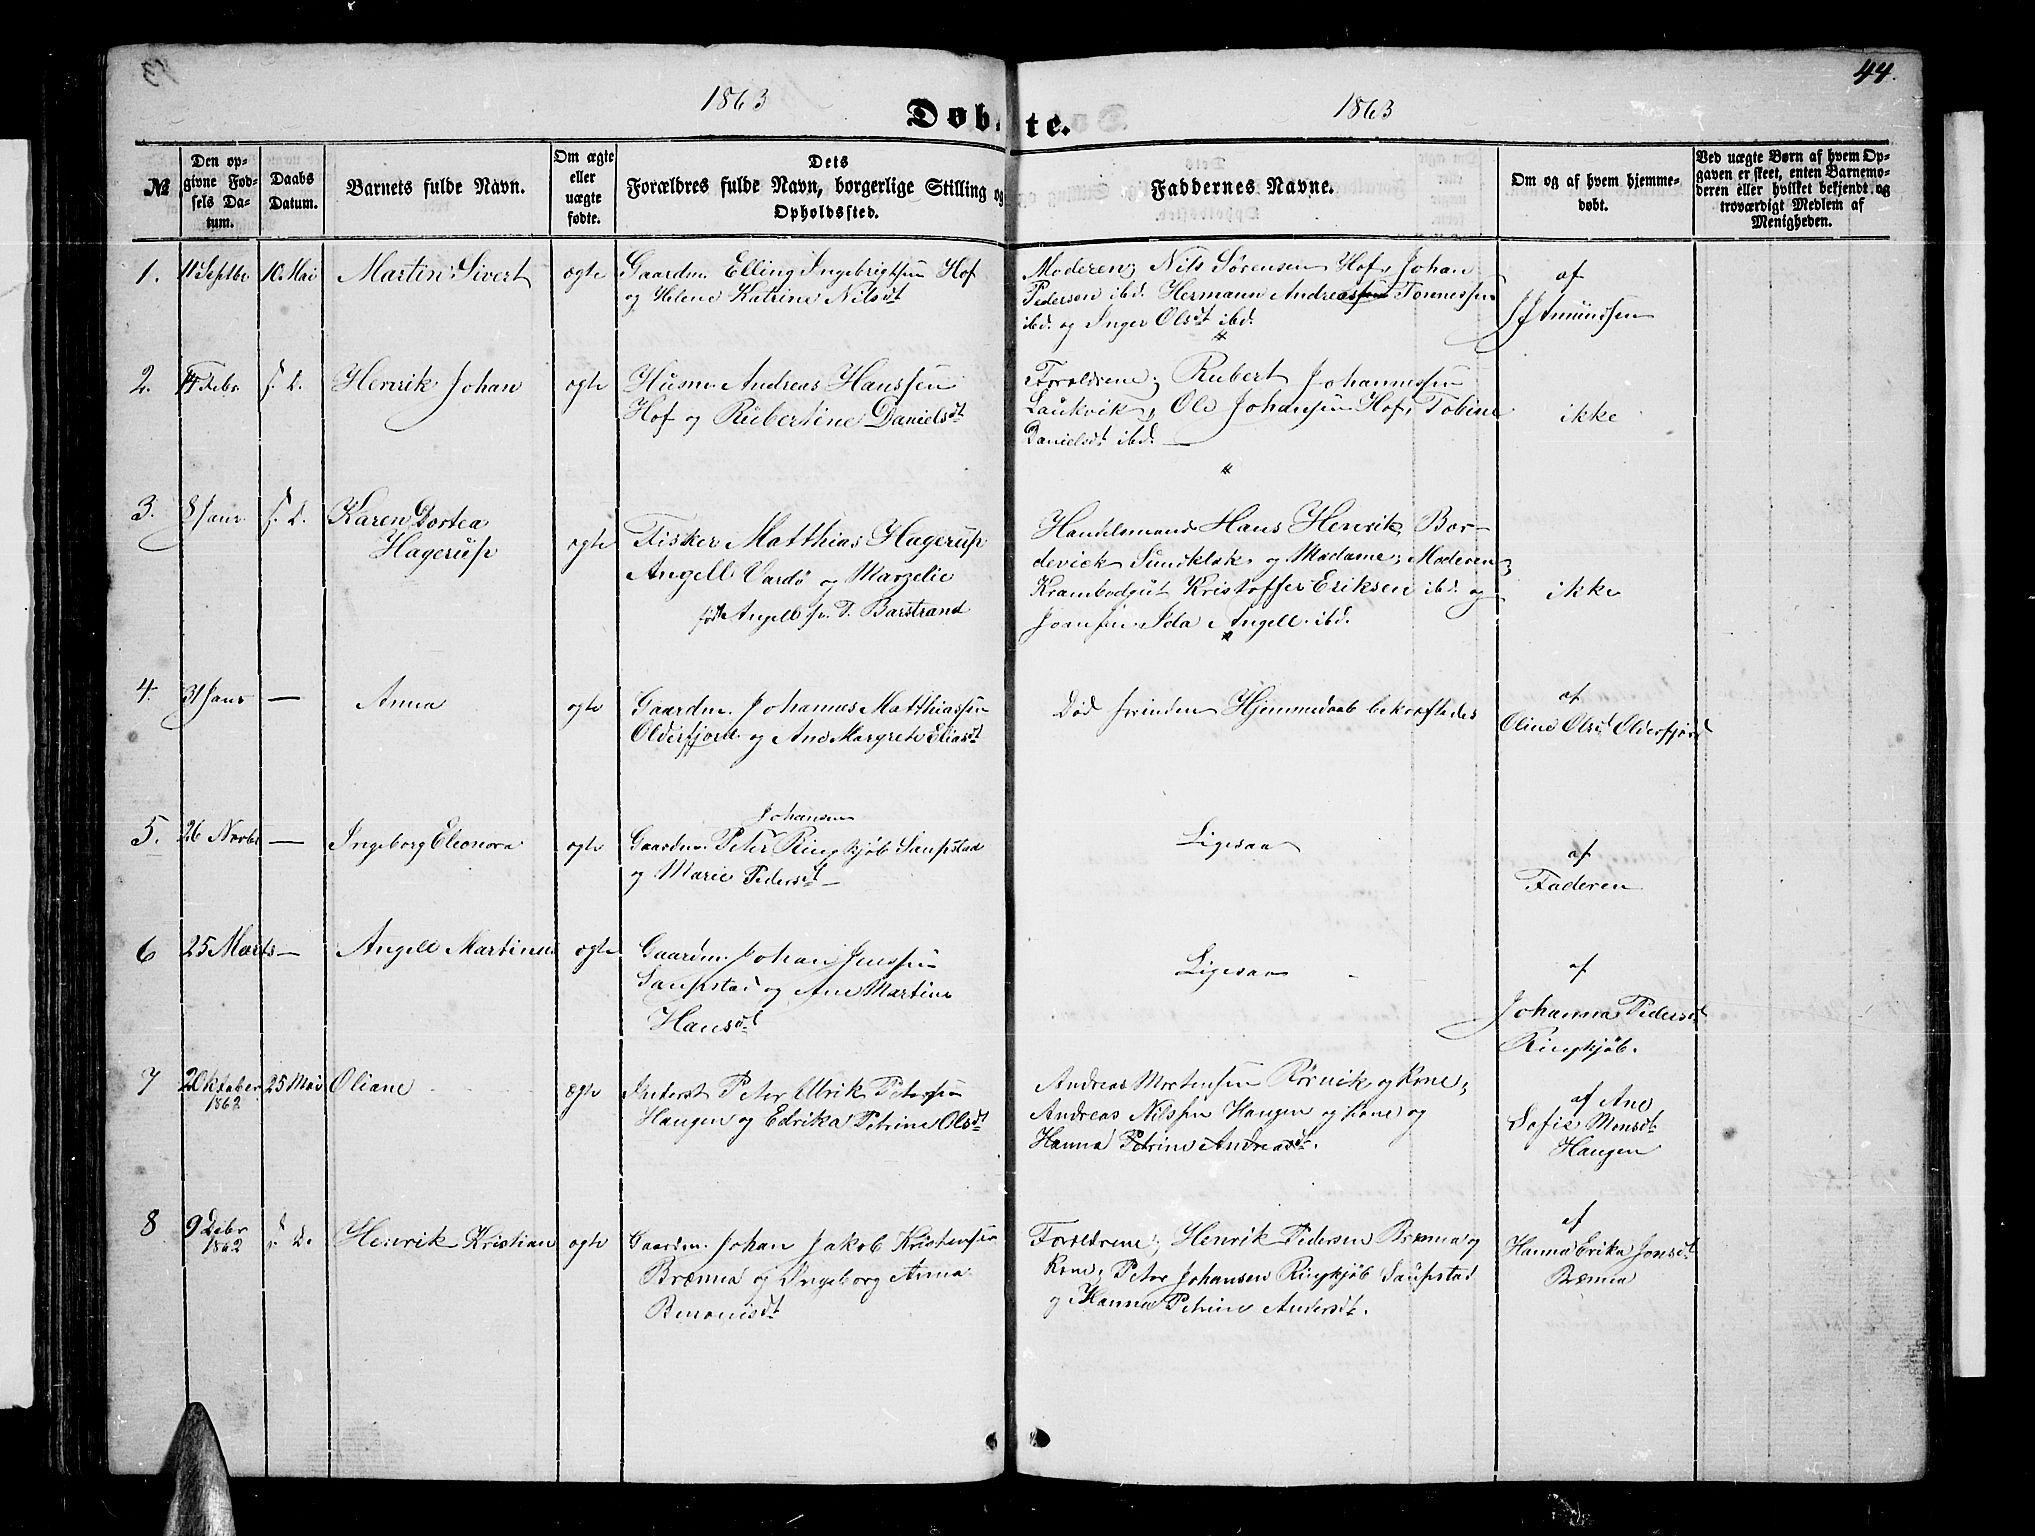 1863
Døbte.
1863
44.
№
Den opgivne Fødsels Datum.
Daabs Datum.
Barnets fulde Navn.
Om ægte eller uægte fødte.
Dets Forældres fulde Navn, borgerlige Stilling og Opholdssted.
Faddernes Navne.
Om og af hvem hjemmedøbt.
Ved uægte Børn af hvem Opgaven er skeet, enten Barnemoderen eller hvilket bekjendt og troværdigt Medlem af Menigheden.
1. 11 Septbr 10 Mai Martin Sivert ægte Gaardm. Elling Ingebrigtsen Hof
og Helene Katrine Nilsdt
Moderen; Nils Sørensen Hof, Johan
Pedersen ibd. Hermann Andreas Tønnessen
ibd. og Inger Olsdt ibd.
af
Amundsen
2. Febr s. D. Henrik Johan ægte Husm. Andreas Hanssen
Hof og Rubertine Danielsdt
Forældrene; Rubert Johannessen
Laukvik, Ole Johansen Hof, Tobine
Danielsdt ibd.
ikke
3. 8 Janr s. D. Karen Dortea
Hagerup
ægte
Fisker Matthias Hagerup
Angell Vardö og Marzelie
født Angell Barstrand
Handelsmand Hans Henrik Bor-
devick Sundklak og Madame; Moderen;
Krambodgut Kristoffer Eriksen ibd. og
Ida Angell ibd.
ikke
4. 31 Janr — Anna ægte Gaardm. Johannes Matthiassen
Olderfjord og Ane Margrete Eliasdt
Død forinden Hjemmedaab bekræftedes
af
Oline Olsdt Olderfjord
5. 26 Novbr — Ingeborg Eleonora ægte
Johansen
Gaardm. Peter Ringkjøb Laupstad
og Marie Pedersdt
Ligesaa
af
Faderen
6 25 Marts — Angell Martinus ægte Gaardm. Johan Jenssen
Laupstad og Ane Martine
Hansdt
Ligesaa
af
Johanna Pedersdt
Ringkjøb.
7 2 Oktober 25 Mai Oliane ægte
1862
Inderst Peter Ulrik Petersen
Haugen og Edrika Petrine Olsdt
Andreas Mortensen Rørvik og Kone;
Andreas Nilssen Haugen og Kone og
Hanna Petrine Andreasdt.
af Ane
Sofie Monsdt
Haugen
8 9 Debr s. D. Henrik Kristian ægte
1862
Gaardm. Johan Jakob Kristensen
Brænna og Ingeborg Anna
Benonisdt
Forældrene; Henrik Pedersen Brænna og
Kone; Peter Johansen Ringkjøb Laupstad
og Hanna Petrine Andersdt.
af
Hanna Erika Jonsdt
Brænna